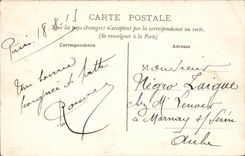 CARTE POSTALE
Tous les pays étrangers n'acceptent pas la correspondance au recto.
(Se renseigner à la Poste)
Correspondance
Paris 18.8.11
Une bonne
poignée de patte
Monsieur
Négro Laigue
chez Mr Lenoir
à Marnay s/ Seine
Aube